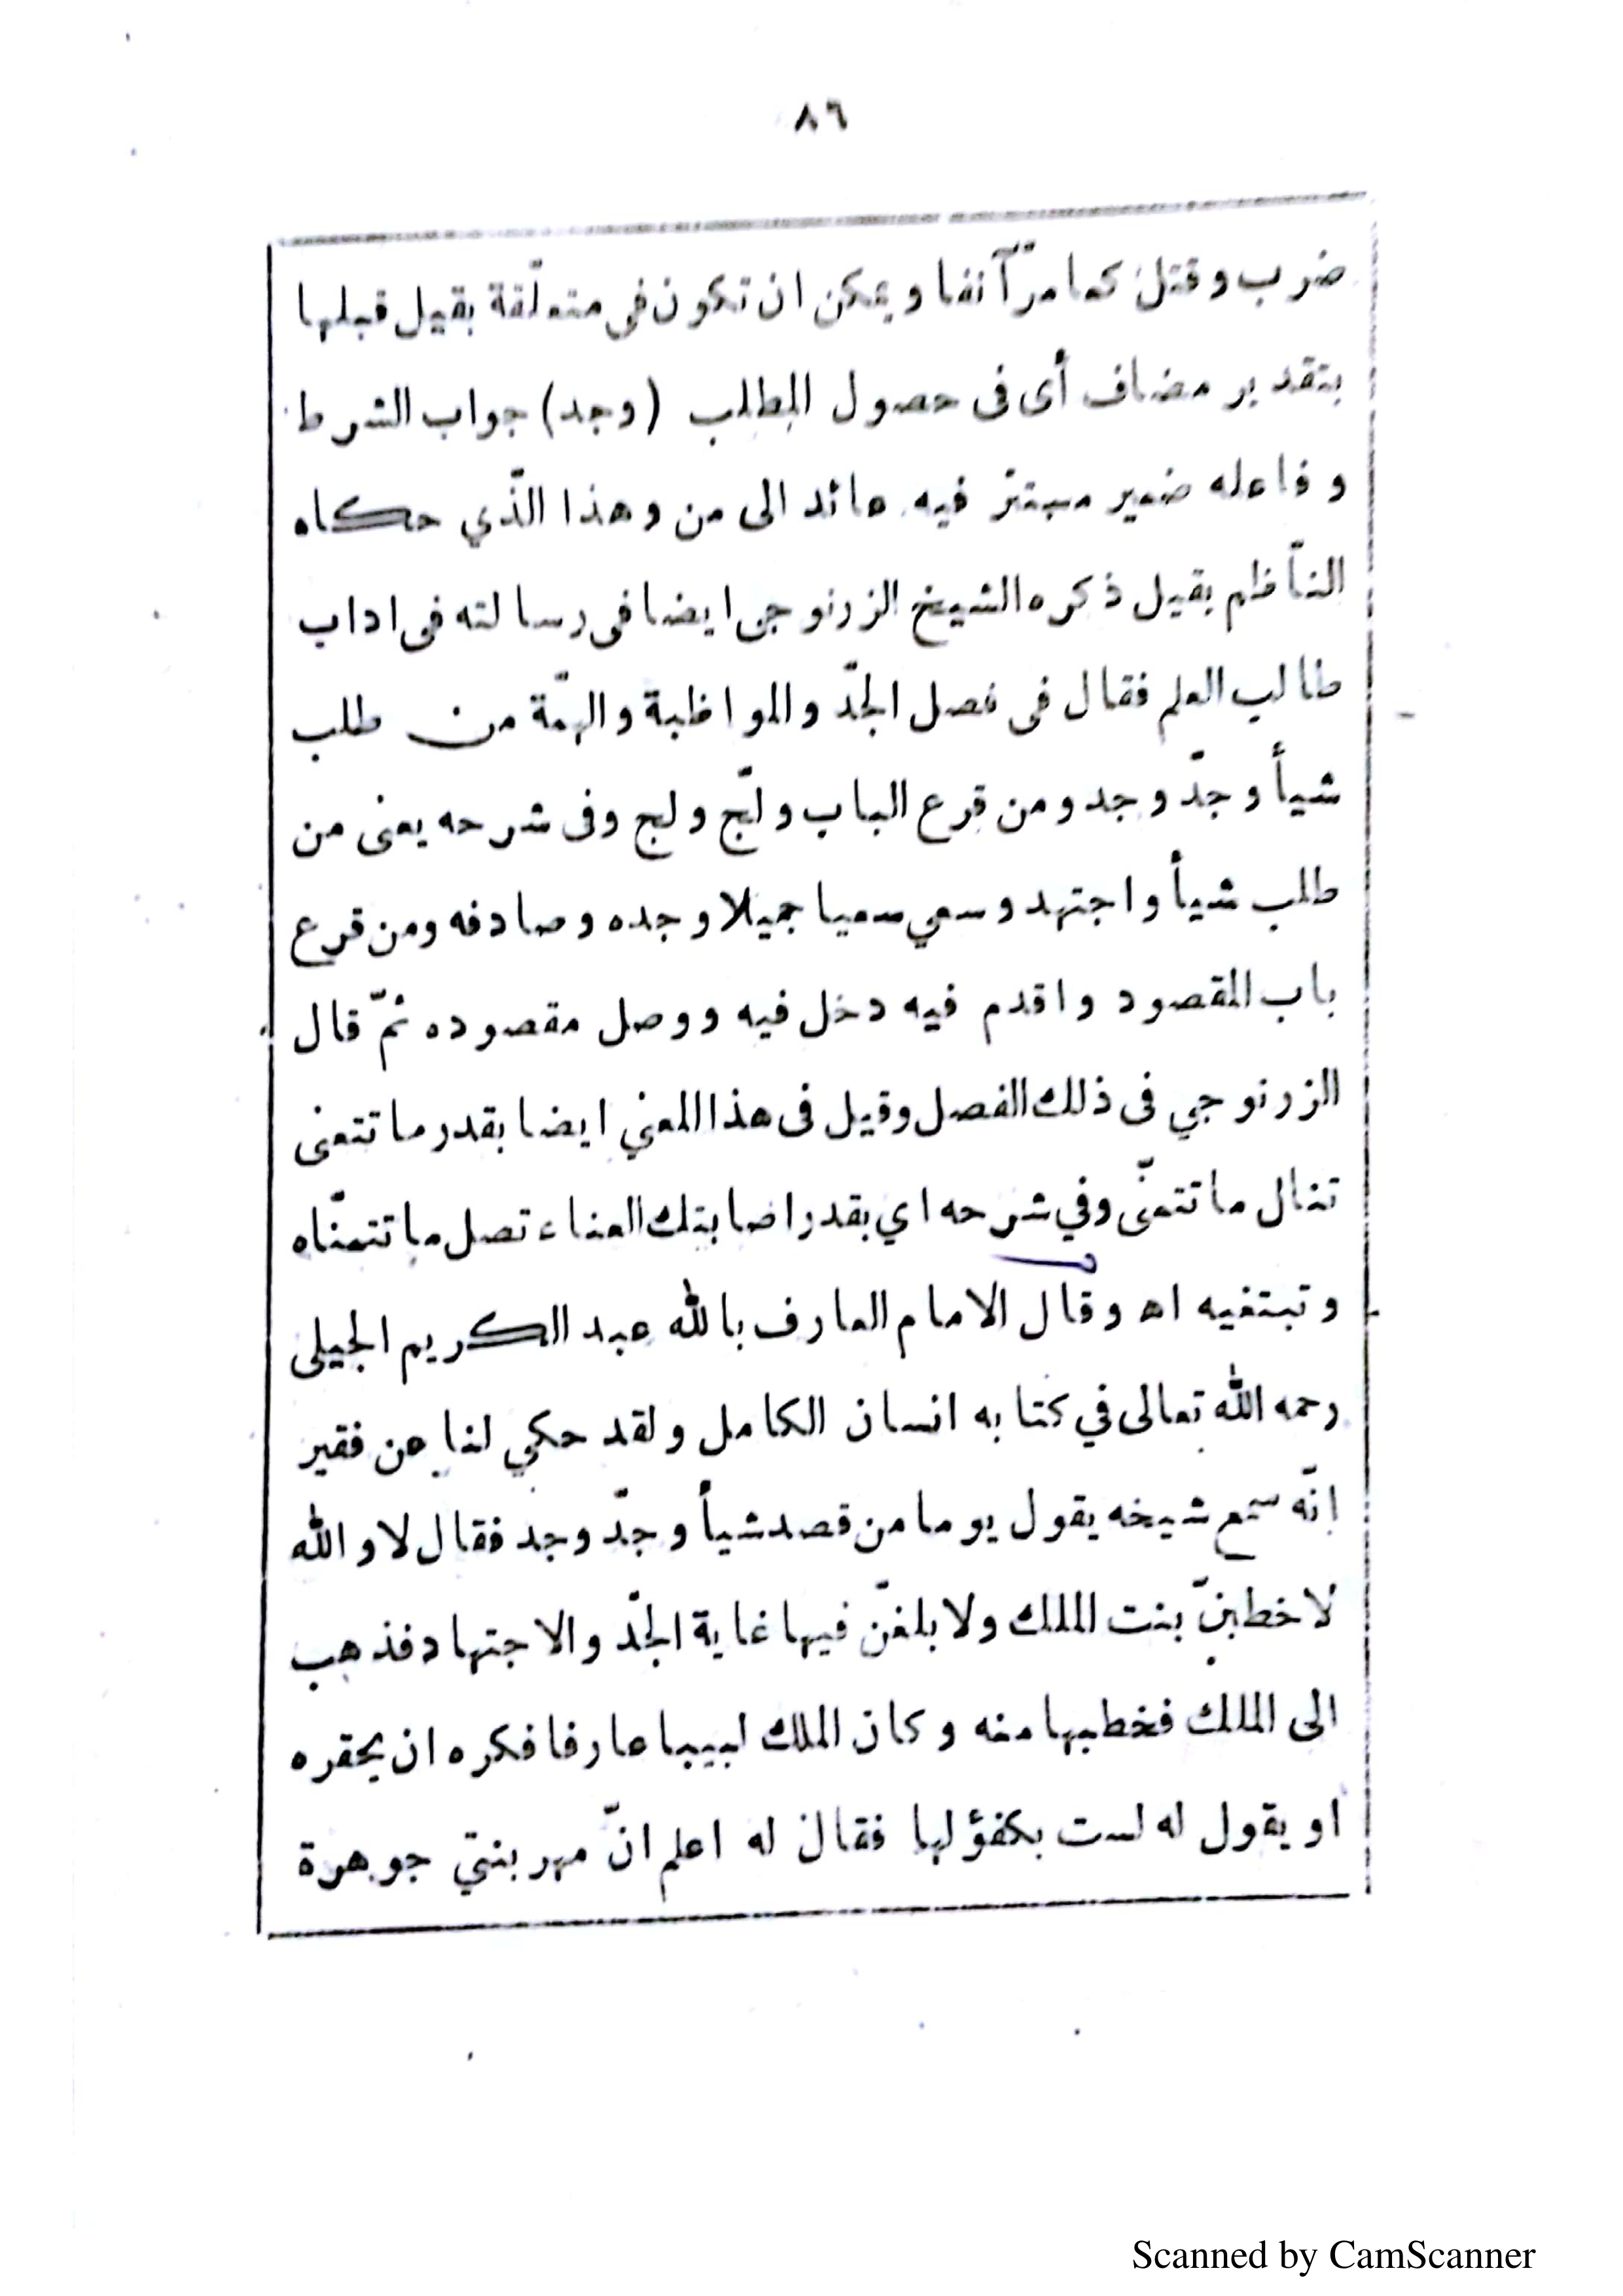 ٨٦
ضرب وقتل كما مرّ آنفا ويمكن ان تكون فى متعلّقة بقيل قبلها
بتقدير مضاف أى فى حصول المطلب (وجد) جواب الشرط
وفاعله ضمير مستتر فيه عائد الى من وهذا الّذي حكاه
النّاظم بقيل ذكره الشيخ الزرنوجى ايضا فى رسالته فى اداب
طالب العلم فقال فى فصل الجدّ والمواظبة والهمّة من طلب
شيأ وجدّ وجد ومن قرع الباب ولجّ ولج وفى شرحه يعنى من
طلب شيأ واجتهد وسعي سعيا جميلا وجده وصادفه ومن قرع
باب المقصود واقدم فيه دخل فيه ووصل مقصوده ثمّ قال
الزرنوجي فى ذلك الفصل وقيل فى هذا المعني ايضا بقدر ما تتعنى
تنال ما تتمنّى وفي شرحه اي بقدر اصابتك العناء تصل ما تتمنّاه
وتبتغيه اه وقال الامام العارف بالله عبد الكريم الجيلى
رحمه الله تعالى في كتابه انسان الكامل ولقد حكي لنا عن فقير
انّه سمع شيخه يقول يوما من قصد شيأ وجدّ وجد فقال لا والله
لاخطبنّ بنت الملك ولا بلغنّ فيها غاية الجدّ والاجتهاد فذهب
الى الملك فخطبها منه وكان الملك لبيبا عارفا فكره ان يحقره
او يقول له لست بكفؤ لها فقال له اعلم انّ مهر بنتي جوهرة
Scanned by CamScanner